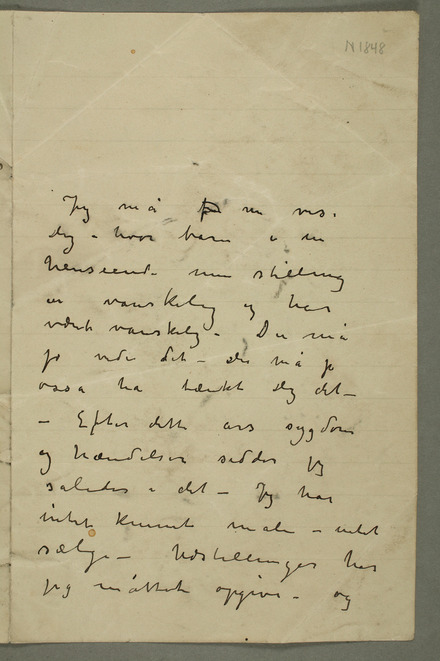 N 1848
Jeg må nu vise
Dig – hvor barn i en
henseende min stilling
er vanskelig og har
vært vanskelig – Du må
jo vide det – du må jo
ossa ha tænkt Dig det –
– Efter dette års sygdom
og hændelser sidder jeg
således i det – Jeg har
intet kunnet male – intet
sælge – Udstillinger har
jeg måttet opgive – og